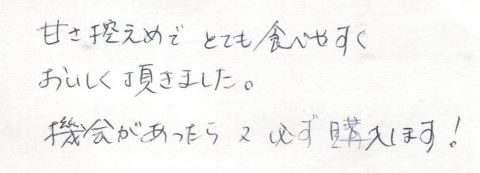 甘さ控えめで とても食べやすく
おいしく頂きました。
機会があったら又必ず購入します!